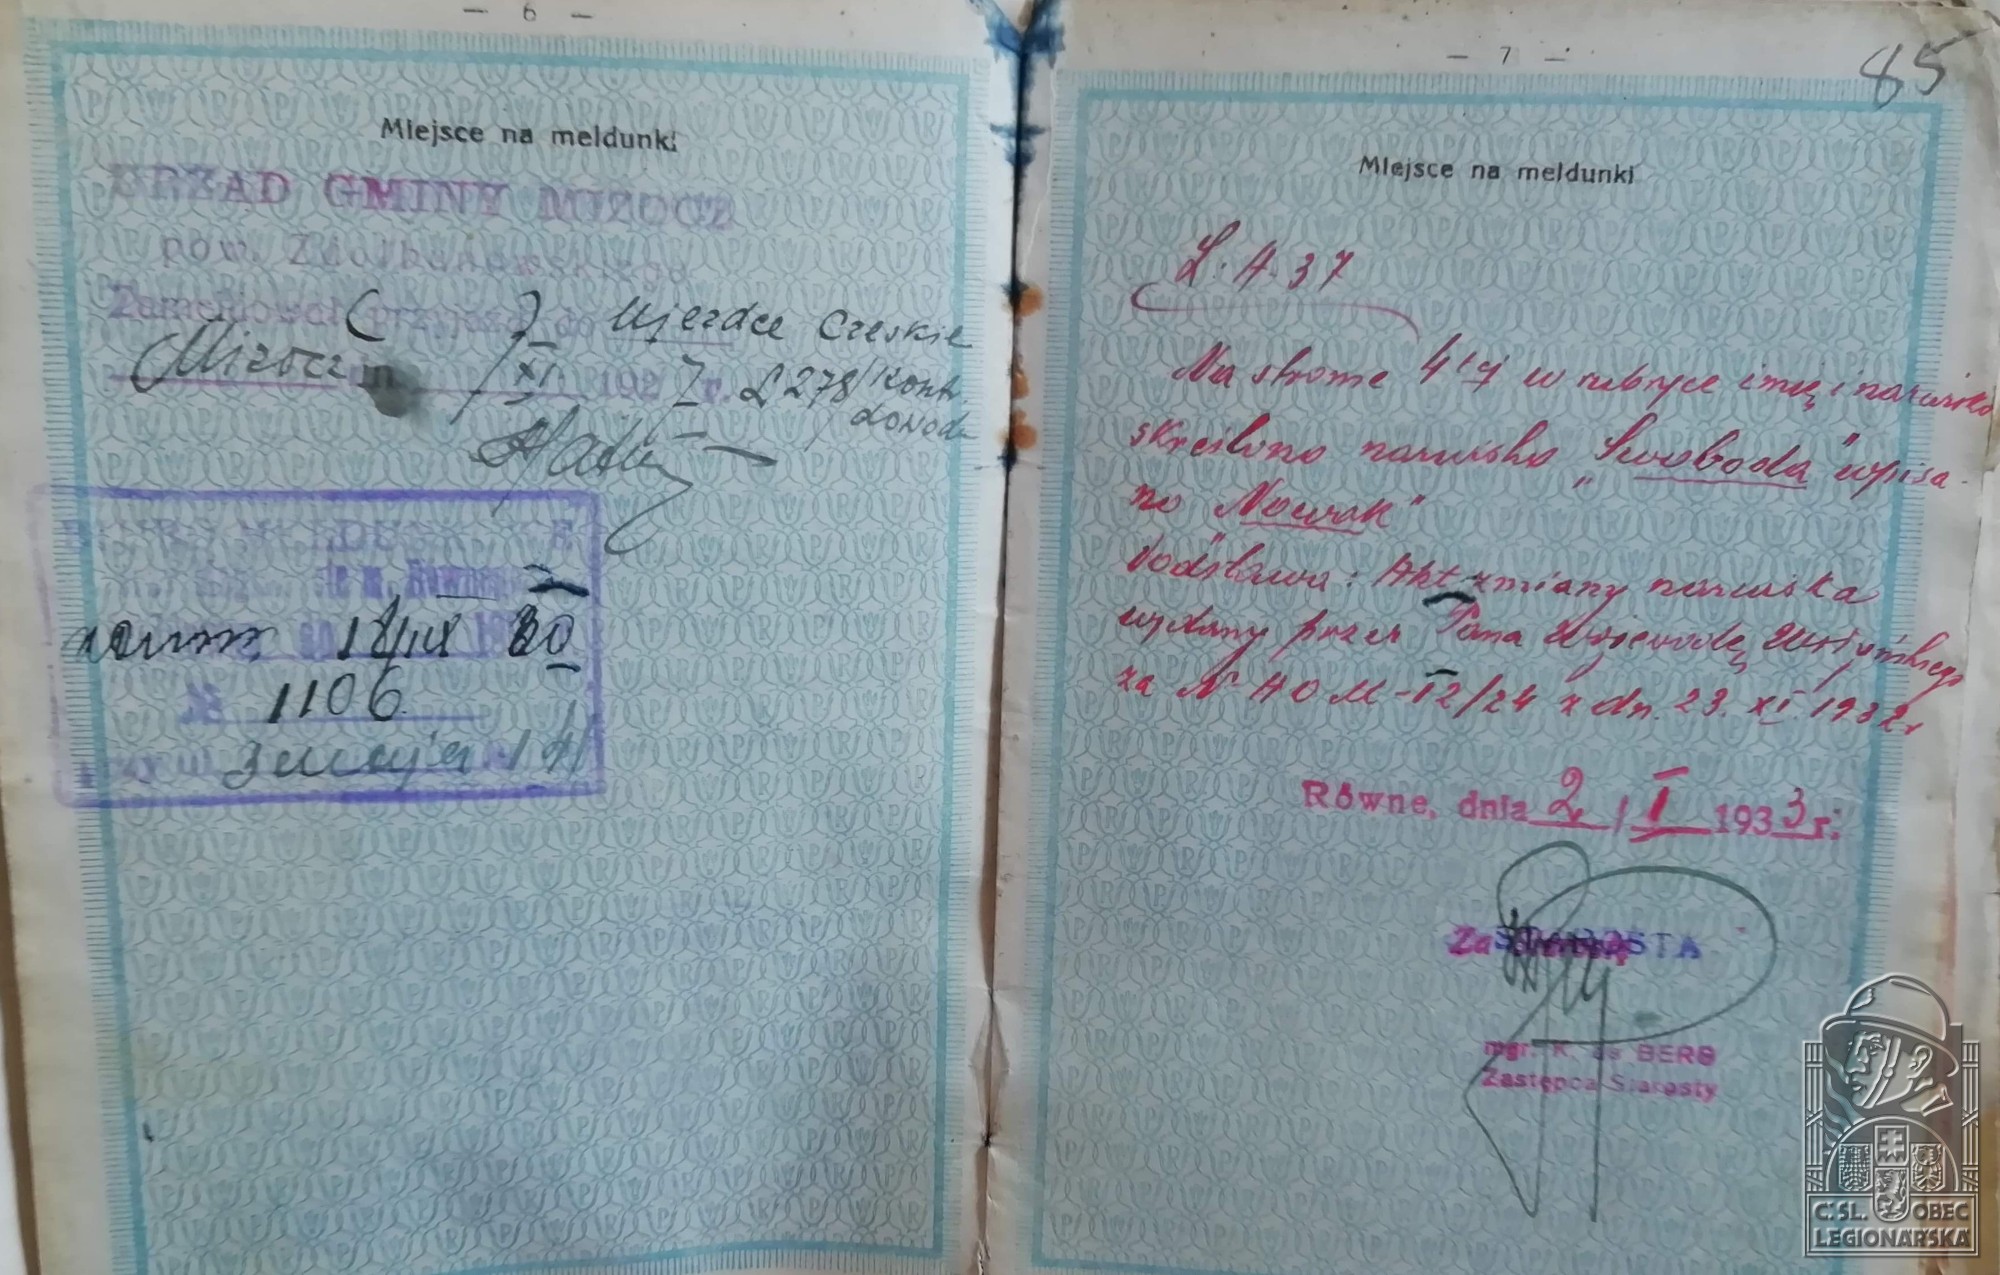 — 6 —
Miejsce na meldunki
URZAD GMINY MIZOCZ
pow. Zdołbunowskiego
Zameldował przyjazd do Ujezdce Czeskie
Mizocz dn. 1/XI 1927 r. L 278/Kont.
dowod.
18/IX 30
№ 1106
3 maja 141
— 7 —
85
Miejsce na meldunki
L. A. 37
Na stronie 4 i 7 w rubryce imię i nazwisko
skreślono nazwisko „Swoboda" wpisa-
no „Nowak"
Podstawa: Akt zmiany nazwiska
wydany przez Pana Wojewodę Wołyńskiego
za № AOM-12/24 z dn. 23. XI. 1932 r
Równe, dnia 2/I 1933 r.
Za STAROSTA
mgr. K. de BERG
Zastępca Starosty
Č. SL. OBEC
LEGIONÁŘSKÁ